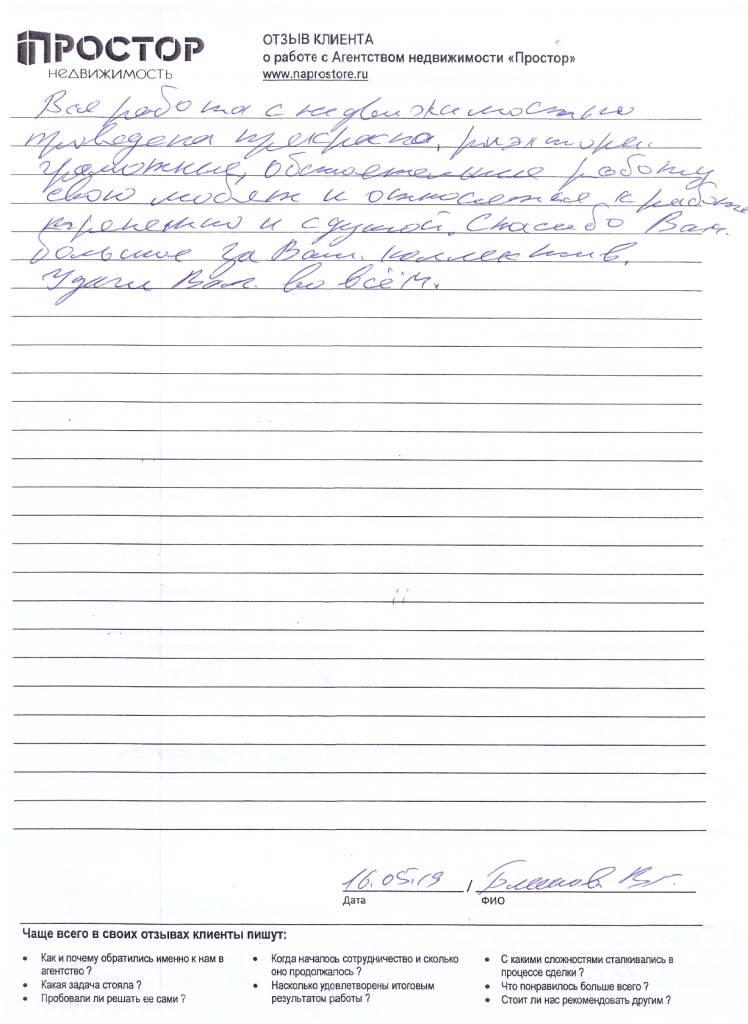 ПРОСТОР
НЕДВИЖИМОСТЬ
ОТЗЫВ КЛИЕНТА
о работе с Агентством недвижимости «Простор»
www.naprostore.ru
Вся работа с недвижимостью
проведена прекрасна, риэлторы
грамотные, обстоятельные работу
свою любят и относятся к работе
и с душой. Спасибо Вам
большое за Ваш коллектив.
Удачи Вам во всём.
16.05.19 /
Дата
ФИО
Чаще всего в своих отзывах клиенты пишут:
• Как и почему обратились именно к нам в
агентство ?
• Какая задача стояла ?
• Пробовали ли решать ее сами ?
• Когда началось сотрудничество и сколько
оно продолжалось ?
• Насколько удовлетворены итоговым
результатом работы ?
• С какими сложностями сталкивались в
процессе сделки ?
• Что понравилось больше всего ?
• Стоит ли нас рекомендовать другим ?